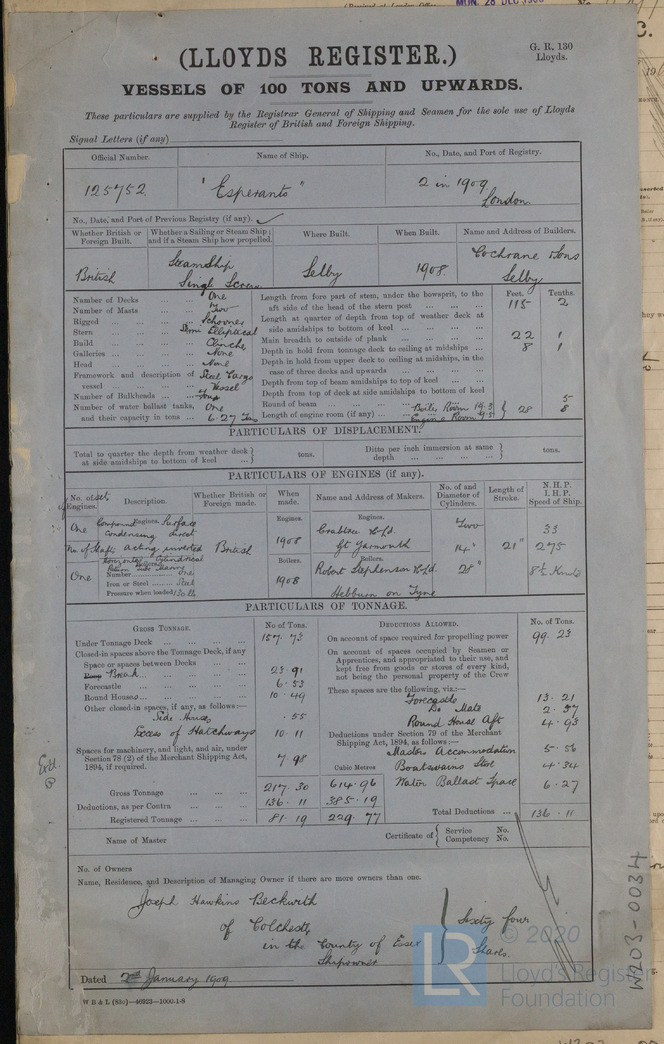 MON. 28 DEC 1908
(LLOYDS REGISTER.)
G. R. 130
Lloyds.
VESSELS OF 100 TONS AND UPWARDS.
These particulars are supplied by the Registrar General of Shipping and Seamen for the sole use of Lloyds
Register of British and Foreign Shipping.
Signal Letters (if any)
Official Number. Name of Ship. No., Date, and Port of Registry.
125752 "Esperanto" 2 in 1909
London
No., Date, and Port of Previous Registry (if any).
Whether British or Foreign Built. Whether a Sailing or Steam Ship; and if a Steam Ship how propelled. Where Built. When Built. Name and Address of Builders.
British Steam Ship Single Screw Selby 1908 Cochrane & Sons Selby
Feet. Tenths.
Number of Decks One
Number of Masts Two
Rigged Schooner
Stern Semi Elliptical
Build Clinche
Galleries None
Head None
Framework and description of vessel Steel Cargo Vessel
Number of Bulkheads Four
Number of water ballast tanks, and their capacity in tons One 6.27 Tons
Length from fore part of stem, under the bowsprit, to the aft side of the head of the stern post 115 2
Length at quarter of depth from top of weather deck at side amidships to bottom of keel
Main breadth to outside of plank 22 1
Depth in hold from tonnage deck to ceiling at midships 8 1
Depth in hold from upper deck to ceiling at midships, in the case of three decks and upwards
Depth from top of beam amidships to top of keel
Depth from top of deck at side amidships to bottom of keel
Round of beam 5
Length of engine room (if any) Boiler Room 19.3 Engine Room 9.5 28 8
PARTICULARS OF DISPLACEMENT.
Total to quarter the depth from weather deck at side amidships to bottom of keel tons. Ditto per inch immersion at same depth tons.
PARTICULARS OF ENGINES (if any).
No. of sets of Engines. Description. Whether British or Foreign made. When made. Name and Address of Makers. No. of and Diameter of Cylinders. Length of Stroke. N. H. P. I. H. P. Speed of Ship.
Engines. Engines. Engines.
One Compound Surface condensing direct acting inverted British 1908 Crabtree & Co Ld. Gt Yarmouth Two 14" 28" 21" 33 275 8½ Knots
No. of Shafts
One
Boilers. Boilers. Boilers.
Number One
Iron or Steel Steel
Pressure when loaded 130 lb
1908 Robert Stephenson & Co Ld. Hebburn on Tyne
PARTICULARS OF TONNAGE.
GROSS TONNAGE. No of Tons.
Under Tonnage Deck 157.73
Closed-in spaces above the Tonnage Deck, if any
Space or spaces between Decks
Break 23.91
Forecastle 6.53
Round Houses 10.49
Other closed-in spaces, if any, as follows:—
Side Houses .55
Excess of Hatchways 10.11
Spaces for machinery, and light, and air, under Section 78 (2) of the Merchant Shipping Act, 1894, if required. 7.98
Cubic Metres
Gross Tonnage 217.30 614.96
Deductions, as per Contra 136.11 385.19
Registered Tonnage 81.19 229.77
DEDUCTIONS ALLOWED. No. of Tons.
On account of space required for propelling power 99.23
On account of spaces occupied by Seamen or Apprentices, and appropriated to their use, and kept free from goods or stores of every kind, not being the personal property of the Crew
These spaces are the following, viz:—
Forecastle 13.21
Do. Mate 2.57
Round House Aft 4.93
Deductions under Section 79 of the Merchant Shipping Act, 1894, as follows:—
Masters Accommodation 5.56
Boatswains Store 4.34
Water Ballast Space 6.27
Total Deductions 136.11
Name of Master Certificate of Service No. Competency No.
No. of Owners
Name, Residence, and Description of Managing Owner if there are more owners than one.
Joseph Hawkins Beckwith
of Colchester
in the County of Essex
Shipowner
Sixty four
Shares.
Dated 2nd January 1909
W B & L (83o)—46922—1000-1-8
W203-0034
LR
© 2020
Lloyd's Register
Foundation